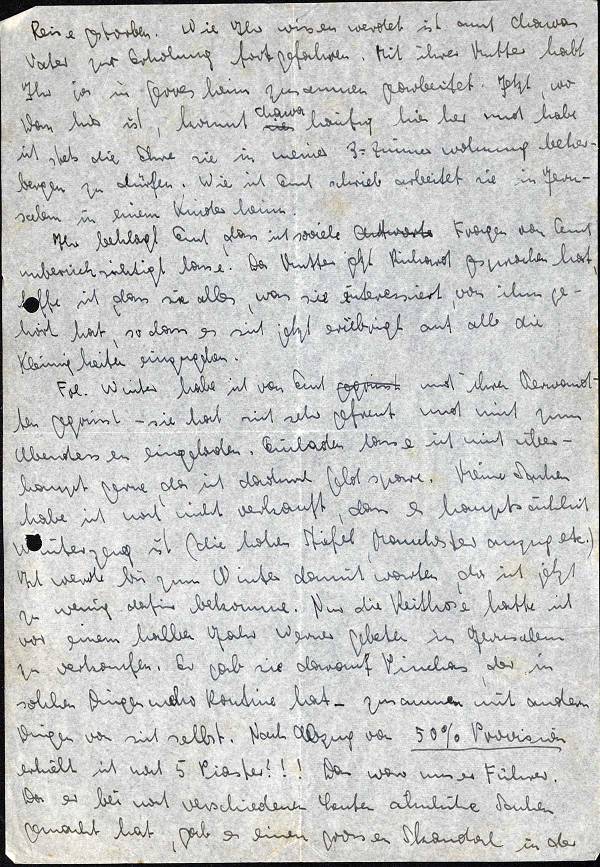 Reise gestorben. Wie Ihr wissen werdet ist auch Chawas
Vater zur Erholung fortgefahren. Mit ihrer Mutter habt
Ihr ja in zusammen gearbeitet. Jetzt, wo
sie hier ist, kommt Chawa häufig hier her und habe
ich stets die Ehre sie in meiner 3-Zimmerwohnung beher-
bergen zu dürfen. Wie ich Euch schrieb arbeitet sie in Jeru-
salem in einem Kinderheim.
Ihr beklagt Euch dass ich soviele Antworte Fragen von Euch
unberücksichtigt lasse. Da Mutter jetzt Richard gesprochen hat,
hoffe ich dass sie alles, was sie interessiert von ihm ge-
hört hat, so dass es sich jetzt erübrigt auf alle die
Kleinigkeiten einzugehen.
Frl. Winter habe ich von Euch gegrüsst und ihren Verwand-
ten gegrüsst - sie hat sich sehr gefreut und mich zum
Abendessen eingeladen. Einladen lasse ich mich über-
haupt gerne, da ich dadurch Geld spare. Meine Sachen
habe ich noch nicht verkauft, dass es hauptsächlich
Winterzeug ist (die hohen Stiefel, Manchesteranzug etc.)
Ich werde bis zum Winter damit warten, da ich jetzt
zu wenig dafür bekomme. Nur die Reithose hatte ich
vor einem halben Jahr Werner gebeten in Jerusalem
zu verkaufen. Er gab sie darauf Pinchas, der in
solchen Dingen mehr Routine hat - zusammen mit andern
Dingen von sich selbst. Nach Abzug von 50% Provision
erhielt ich noch 5 Piaster!!! Das war unser Führer.
Da er bei noch verschiedenen Leuten ähnliche Sachen
gemacht hat, gab es einen grossen Skandal in der